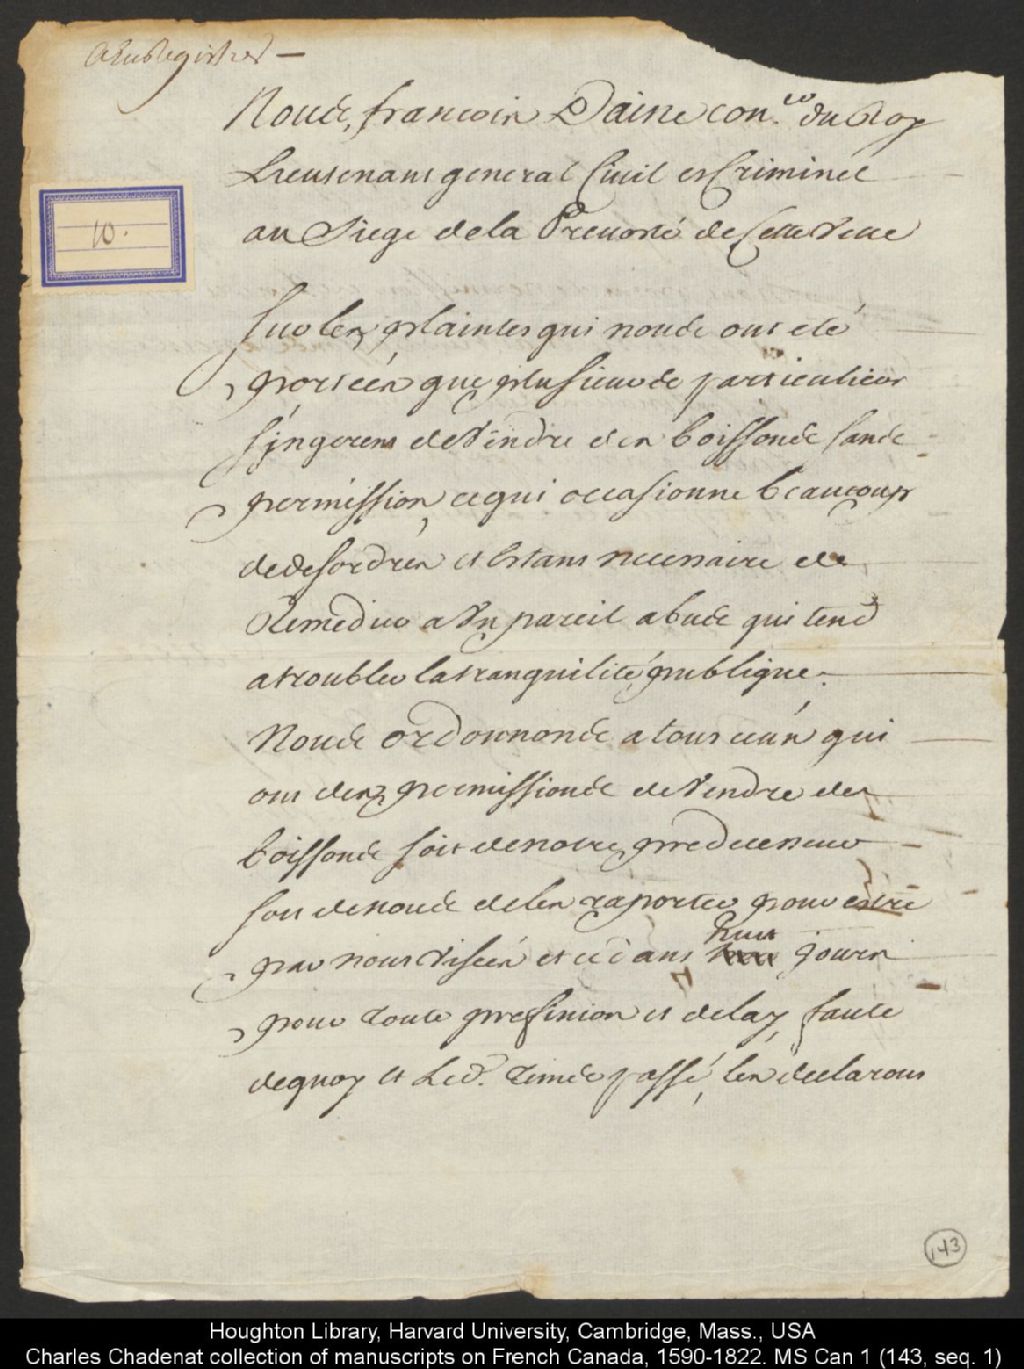 A Enregistrer —
Nous, francois Daine con.er du Roy
Lieutenant general Civil et Criminel
au Siege de la Prevosté de Cette Ville
10.
Sur les plaintes qui nous ont eté
portées que plusieurs particuliers
s'jngerent de Vendre des boissons sans
permission, ce qui occasionne beaucoup
de desordres et Estant necessaire de
Remedier a Un pareil abus qui tend
a troubler la tranquilité publique.
Nous ordonnons a tous ceux qui
ont des permissions de Vendre des
boissons soit de notre predecesseur
soit de nous de les raporter pour estre
huit
par nous Visées et ce dans jours
pour toute prefixion et delay, faute
de quoy et Led. tems passé, les declarons
143
Houghton Library, Harvard University, Cambridge, Mass., USA
Charles Chadenat collection of manuscripts on French Canada, 1590-1822. MS Can 1 (143, seq. 1)